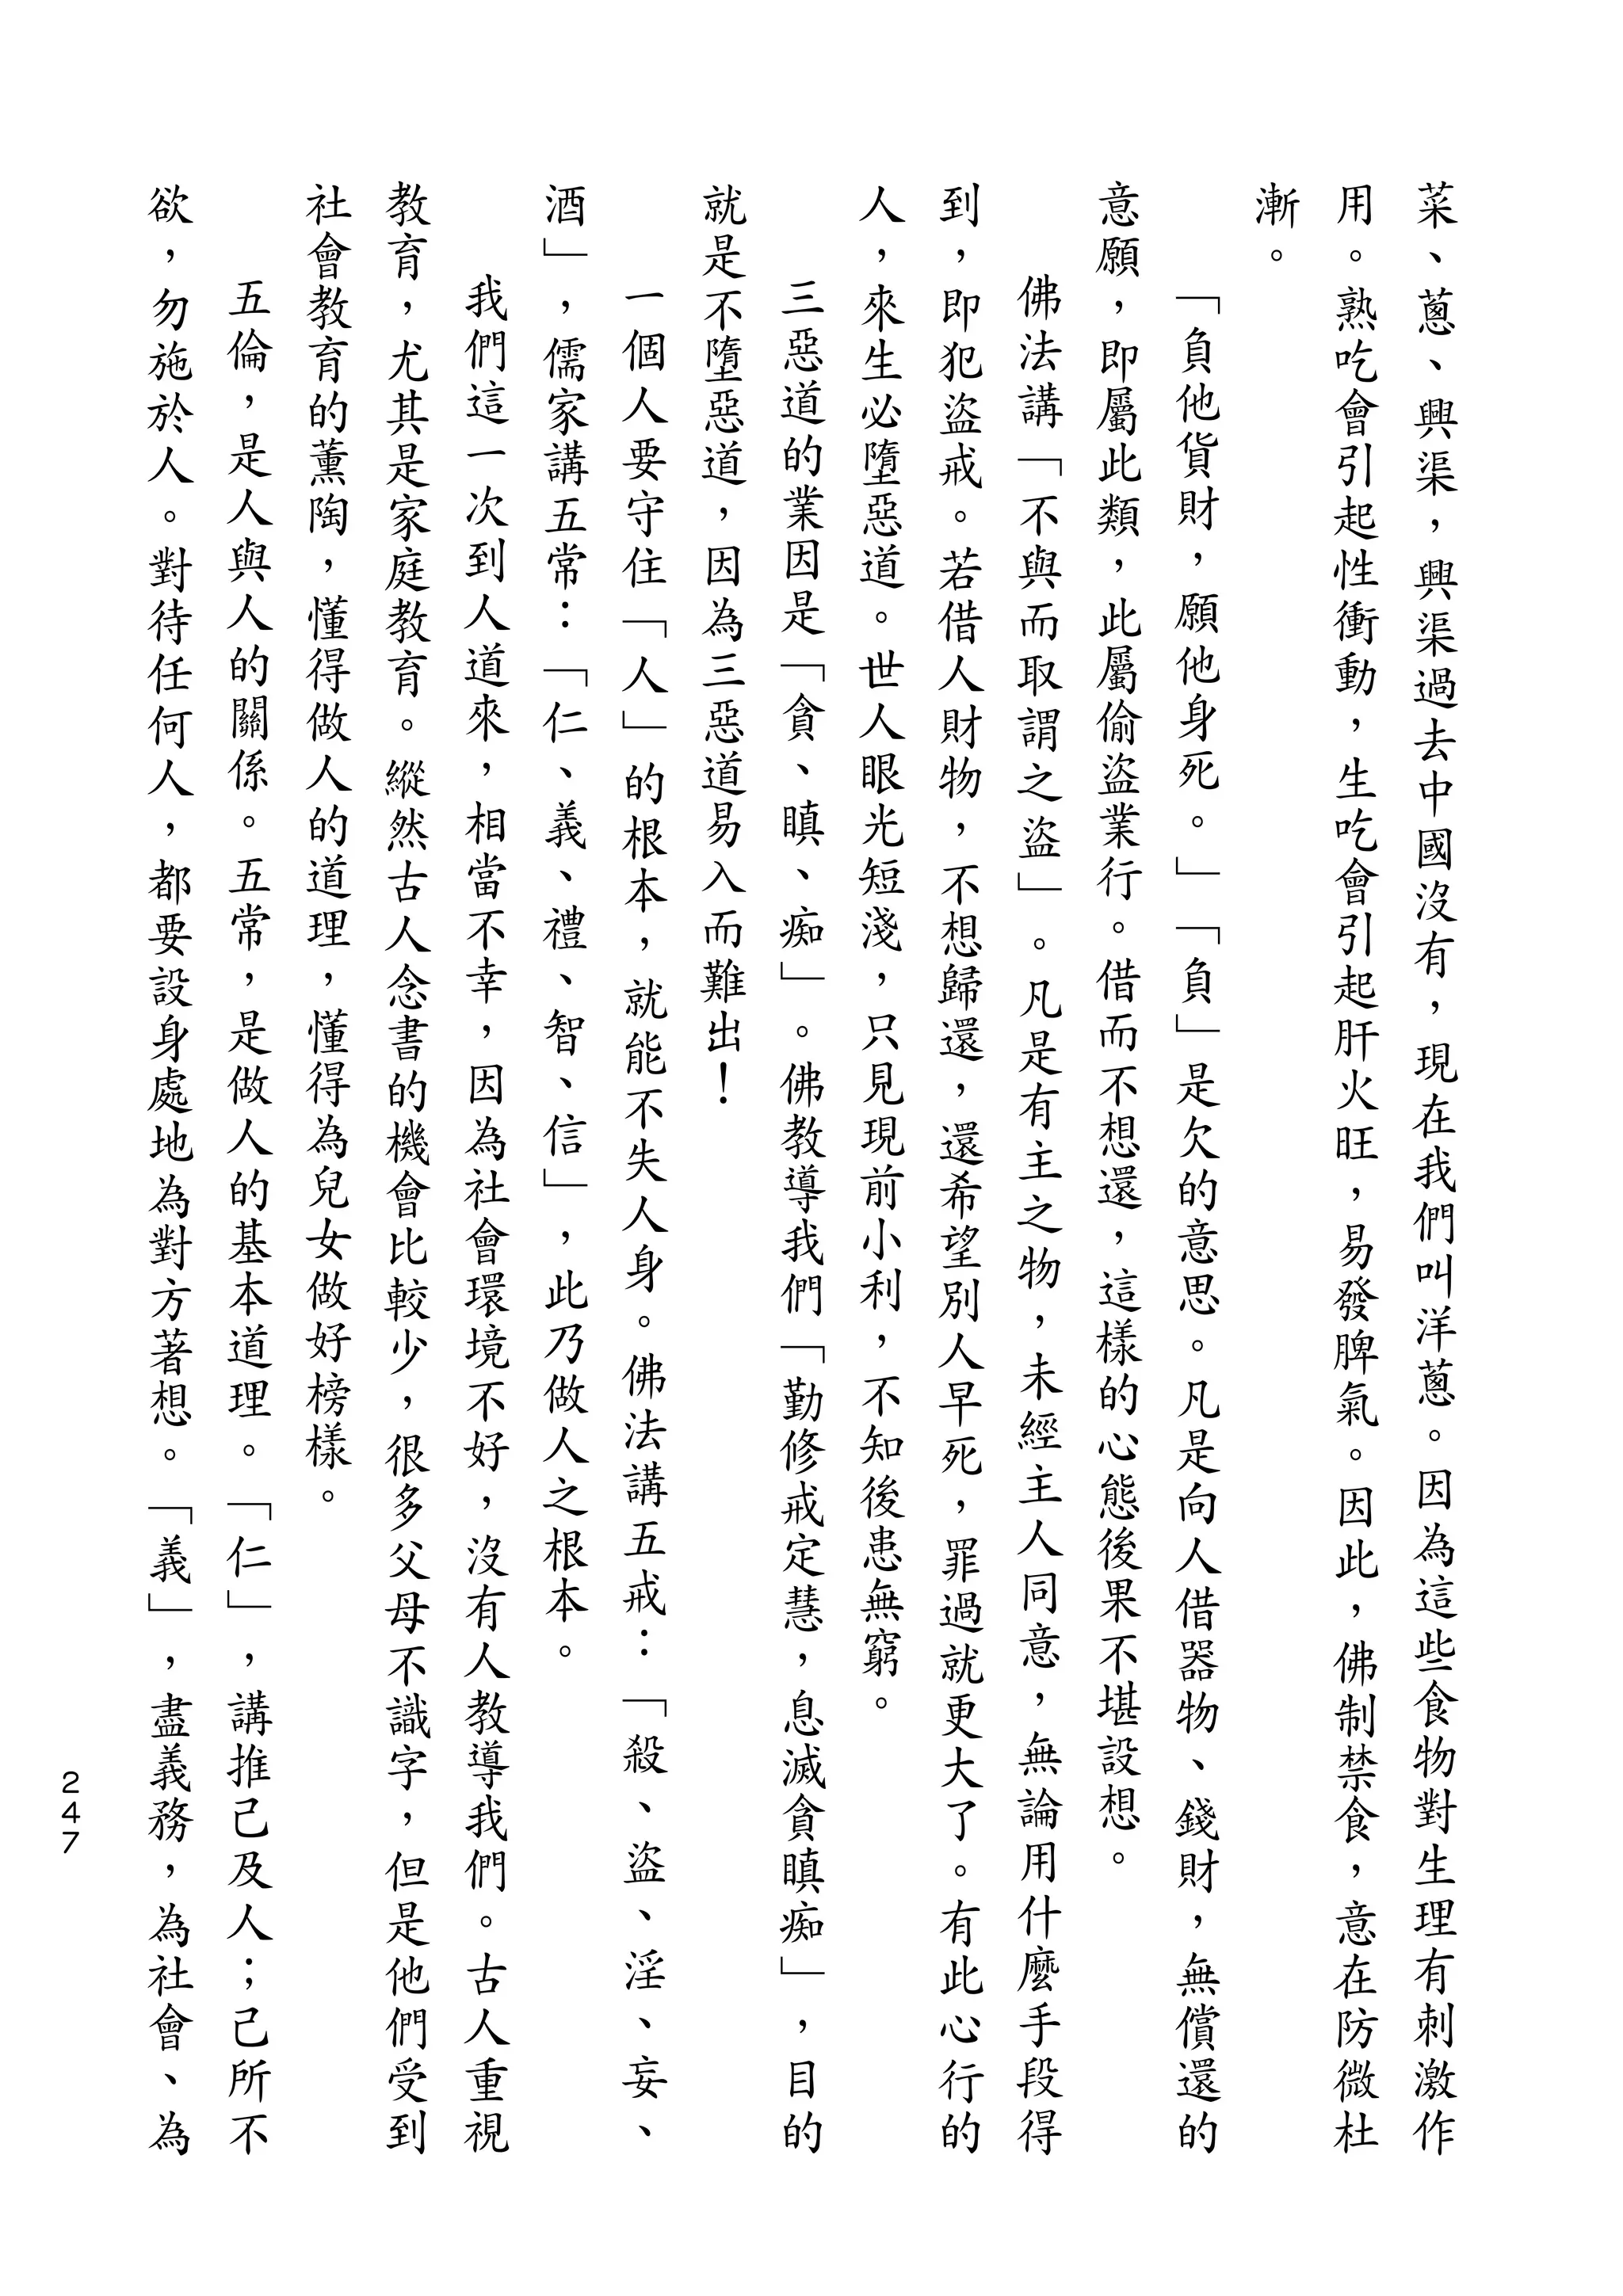 菜、蔥、興渠，興渠過去中國沒有，現在我們叫洋蔥。因為這些食物對生理有刺激作
用。熟吃會引起性衝動，生吃會引起肝火旺，易發脾氣。因此，佛制禁食，意在防微杜
漸。
「負他貨財，願他身死。」「負」是欠的意思。凡是向人借器物、錢財，無償還的
意願，即屬此類，此屬偷盜業行。借而不想還，這樣的心態後果不堪設想。
佛法講「不與而取謂之盜」。凡是有主之物，未經主人同意，無論用什麼手段得
到，即犯盜戒。若借人財物，不想歸還，還希望別人早死，罪過就更大了。有此心行的
人，來生必墮惡道。世人眼光短淺，只見現前小利，不知後患無窮。
三惡道的業因是「貪、瞋、痴」。佛教導我們「勤修戒定慧，息滅貪瞋痴」，目的
就是不墮惡道，因為三惡道易入而難出！
一個人要守住「人」的根本，就能不失人身。佛法講五戒：「殺、盜、淫、妄、
酒」，儒家講五常：「仁、義、禮、智、信」，此乃做人之根本。
我們這一次到人道來，相當不幸，因為社會環境不好，沒有人教導我們。古人重視
教育，尤其是家庭教育。縱然古人念書的機會比較少，很多父母不識字，但是他們受到
社會教育的薰陶，懂得做人的道理，懂得為兒女做好榜樣。
五倫，是人與人的關係。五常，是做人的基本道理。「仁」，講推己及人；己所不
欲，勿施於人。對待任何人，都要設身處地為對方著想。「義」，盡義務，為社會、為
247